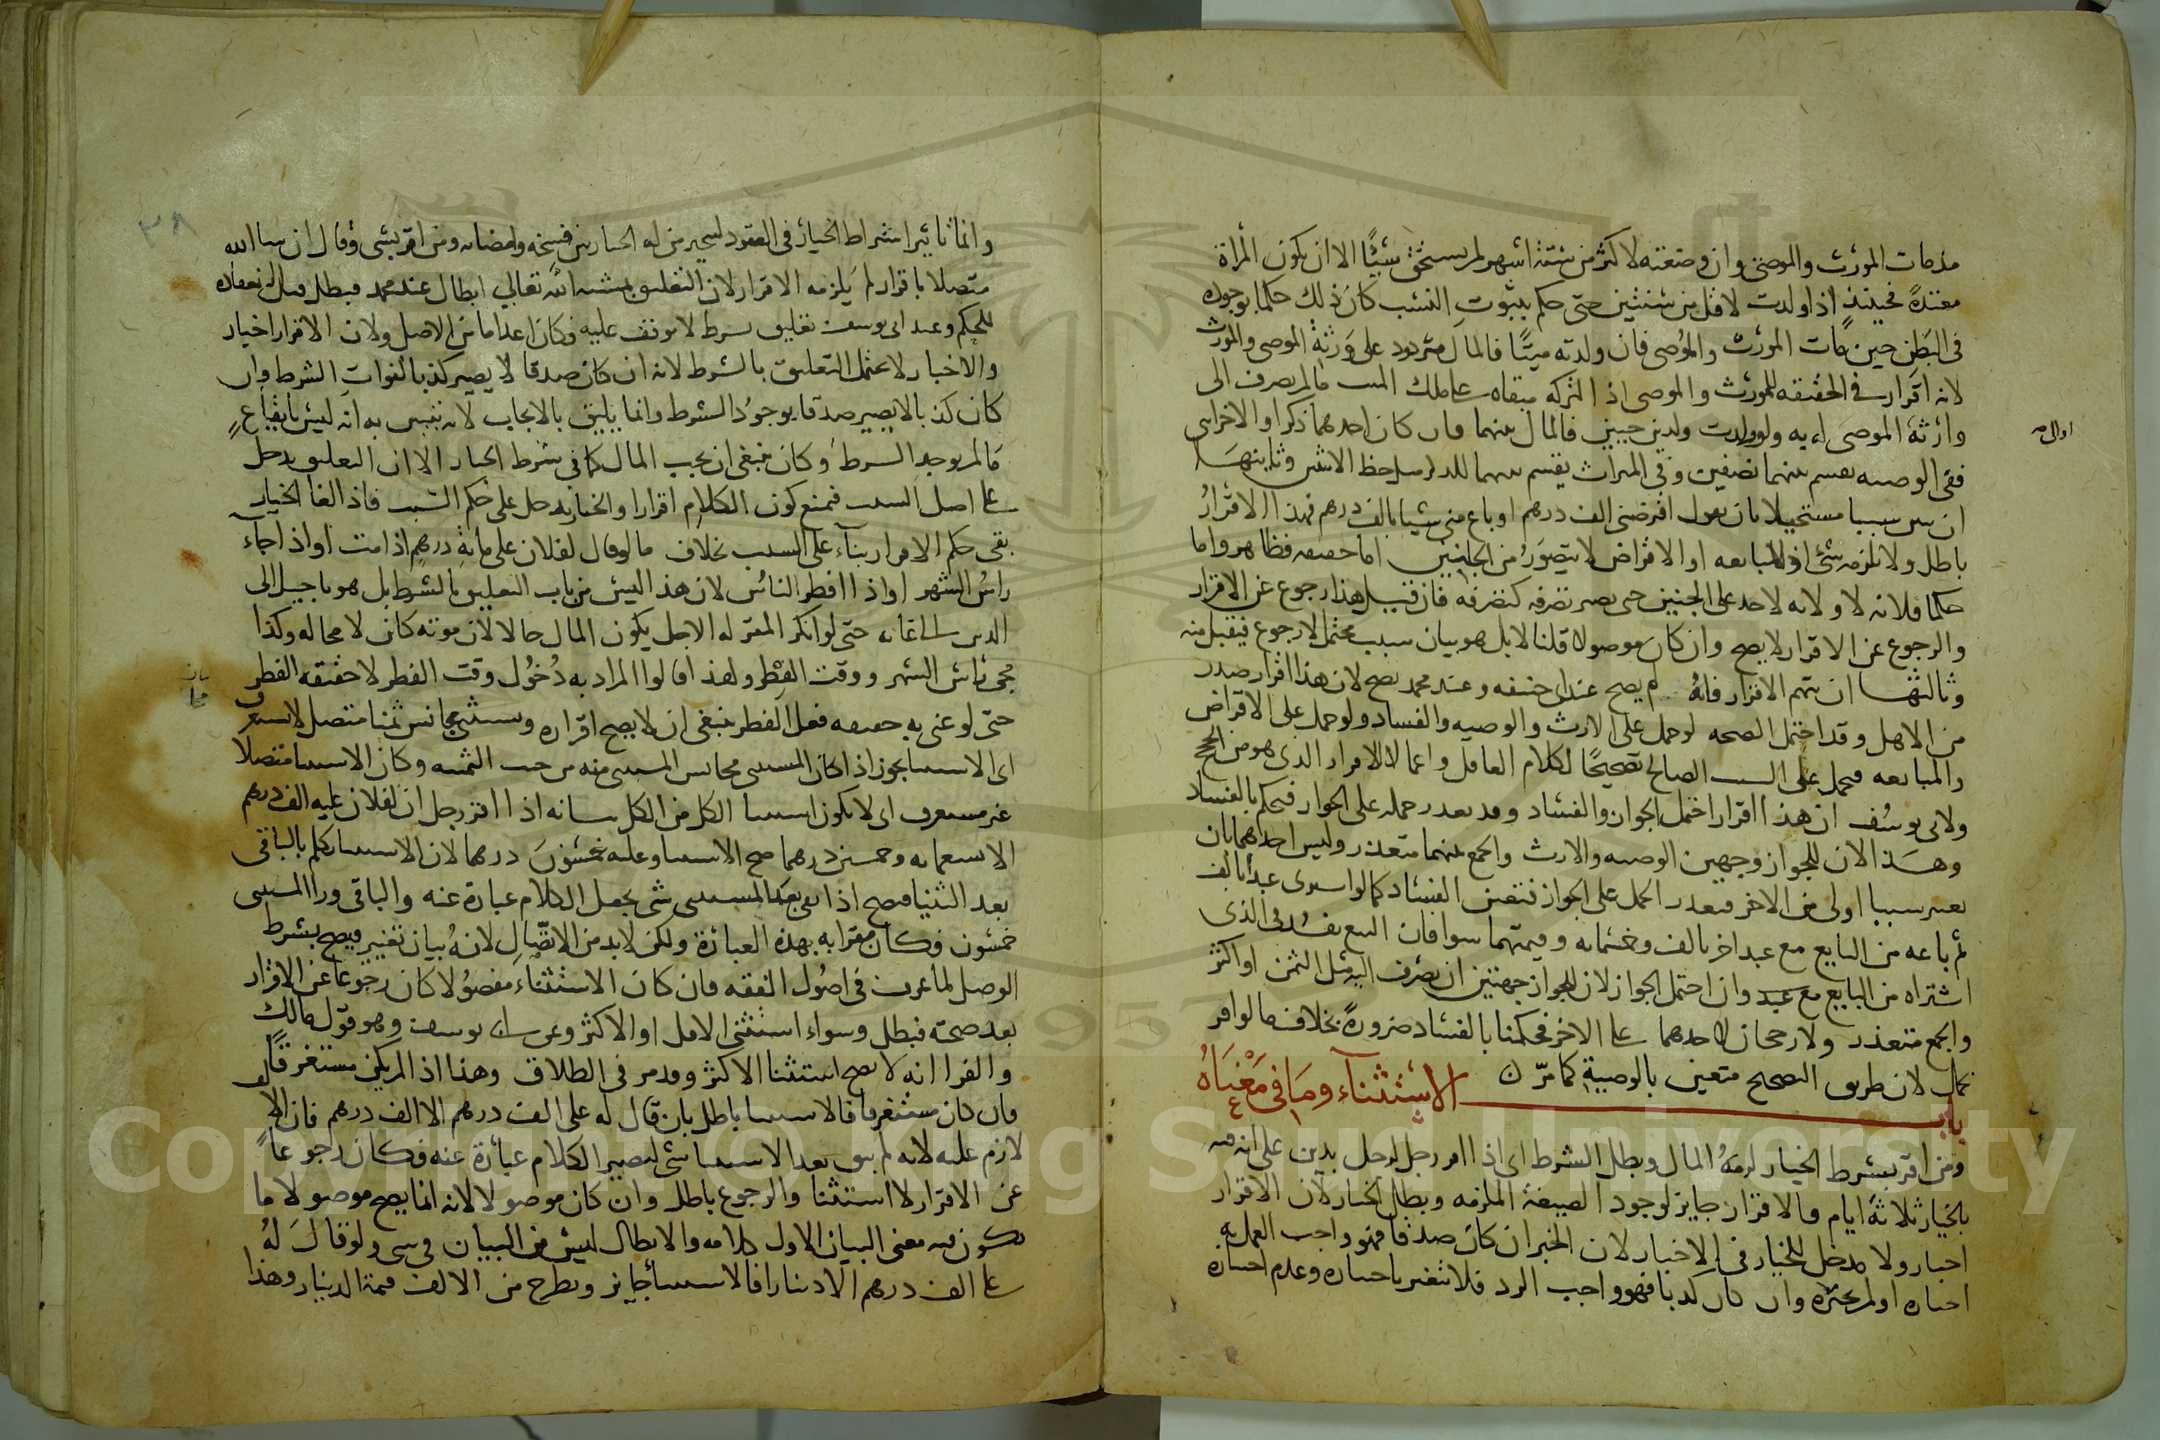 مذمات المورث والموصى وان وضعته لاكثر من ستة اشهر لم يستحق شيئا الا ان يكون المرأة
معتدة فحينئذ اذا ولدت لاقل من سنتين حتى حكم بثبوت النسب كان ذلك حكما بوجوده
فى البطن حين مات المورث والموصى فان ولدته ميتا فالمال مردود على ورثة الموصى والمورث
لانه اقرار فى الحقيقه للمورث والموصى اذ التركه مبقاه على ملك الميت مالم يصرف الى
وارثه الموصى له به ولو ولدت ولدين حيين فالمال بينهما فان كان احدهما ذكرا والاخر انثى
ففى الوصيه يقسم بينهما نصفين وفى الميراث يقسم بينهما للذكر مثل حظ الانثيين وثانيتها
ان يبين سببا مستحيلا بان يقول اقرضنى الف درهم او باع منى شيئا بالف درهم فهذا الاقرار
باطل ولا يلزمه شئ اذ المبايعه او الاقراض لا يتصور من الجنين اما حقيقه فظاهر واما
حكما فلانه لا ولايه لاحد على الجنين حتى يصير تصرفه كتصرفه فان قيل هذا رجوع عن الاقرار
والرجوع عن الاقرار لا يصح وان كان موصولا قلنا لا بل هو بيان سبب محتمل لا رجوع فيقبل منه
وثالثها ان يبهم الاقرار فانه لم يصح عند ابى حنيفه وعند محمد يصح لان هذا اقرار صدر
من الاهل وقد احتمل الصحه لو حمل على الارث والوصيه والفساد ولو حمل على الاقراض
والمبايعه فيحمل على السبب الصالح تصحيحا لكلام العاقل واعمالا للاقرار الذى هو من الحجج
ولابى يوسف ان هذا اقرار احتمل الجواز والفساد وقد تعذر حمله على الجواز فيحكم بالفساد
وهذا لان للجواز وجهين الوصيه والارث والجمع بينهما متعذر وليس احدهما بان
يعتبر سببا اولى من الاخر فتعذر الحمل على الجواز فتعين الفساد كما لو اشترى عبدا بالف
ثم باعه من البايع مع عبد اخر بالف وخمسمايه وقيمتهما سوا فان البيع يفسد فى الذى
اشتراه من البايع مع عبد وان احتمل الجواز لان للجواز جهتين ان يصرف اليه مثل الثمن او اكثر
والجمع متعذر ولا رجحان لاحدهما على الاخر فحكمنا بالفساد ضرورة بخلاف ما لو اقر
بحمل لان طريق التصحيح متعين بالوصية كما مر ن
باب الاستثناء وما فى معناه
ومن اقر بشرط الخيار لزمه المال وبطل الشرط اى اذا اقر رجل لرجل بدين على انه فيه
بالخيار ثلاثة ايام فالاقرار جايز لوجود الصيغة الملزمه وبطل الخيار لان الاقرار
اخبار ولا مدخل للخيار فى الاخبار لان الخبر ان كان صدقا فهو واجب العمل به
اختاره او لم يختره وان كان كذبا فهو واجب الرد فلا يتغير باختياره وعدم اختياره
وانما تاثير اشتراط الخيار فى العقود ليتخير من له الخيار بين فسخه وامضائه ومن اقر بشئ وقال ان شاالله
متصلا باقراره لم يلزمه الاقرار لان التعليق بمشيئه الله تعالى ابطال عند محمد فبطل قبل انعقاده
للحكم وعند ابى يوسف تعليق بشرط لا يوقف عليه فكان اعداما من الاصل ولان الاقرار اخبار
والاخبار لا يحتمل التعليق بالشرط لانه ان كان صدقا لا يصير كذبا لفوات الشرط وان
كان كذبا لا يصير صدقا بوجود الشرط وانما يليق بالايجاب لانه تبين به انه ليس بايقاع
مالم يوجد الشرط وكان ينبغى ان يجب المال كما فى شرط الخيار الا ان التعليق يدخل
على اصل السبب فيمنع كون الكلام اقرارا والخيار يدخل على حكم السبب فاذا لغا الخيار
بقى حكم الاقرار بناء على السبب بخلاف ما لو قال لفلان على ماية درهم اذا مت او اذا جاء
راس الشهر او اذا افطر الناس لان هذا ليس من باب التعليق بالشرط بل هو تاجيل الى
حتى لو انكر المقر له الاجل يكون المال حالا لان موته كائن لا محاله وكذا
مجئ راس الشهر ووقت الفطر ولهذا قالوا المراد به دخول وقت الفطر لا حقيقه الفطر
حتى لو عنى به حقيقه فعل الفطر ينبغى ان لا يصح اقراره ويستثنى مجانس ثمنا متصل لا مستغرق
اى الاستثنا يجوز اذا كان المستثنى مجانس المستثنى منه من حيث الثمنيه وكان الاستثنا متصلا
غير مستغرق اى لا يكون استثنا الكل من الكل بيانه اذا اقر رجل ان لفلان عليه الف درهم
الا تسعمايه وخمسين درهما صح الاستثنا وعليه خمسون درهما لان الاستثنا تكلم بالباقى
بعد الثنيا فيصح اذا بقى بعد المستثنى شئ يجعل الكلام عبارة عنه والباقى ورا المستثنى
خمسون فكان مقرا به بهذه العبارة ولكن لابد من الاتصال لانه بيان تغيير فيصح بشرط
الوصل لما عرف فى اصول الفقه فان كان الاستثناء مفصولا كان رجوعا عن الاقرار
بعد صحته فبطل وسواء استثنى الاقل او الاكثر وعن ابى يوسف وهو قول مالك
والفرا انه لا يصح استثنا الاكثر وقد مر فى الطلاق وهذا اذا لم يكن مستغرقا
فان كان مستغرقا فالاستثنا باطل بان قال له على الف درهم الا الف درهم فان الالف
لازم عليه لانه لم يبق بعد الاستثنا شئ ليصير الكلام عبارة عنه فكان رجوعا
عن الاقرار لا استثنا والرجوع باطل وان كان موصولا لانه انما يصح موصولا ما
يكون فيه معنى البيان لاول كلامه والابطال ليس من البيان فى شئ ولو قال له
على الف درهم الا دينارا فالاستثنا جايز ويطرح من الالف قيمة الدينار وهذا